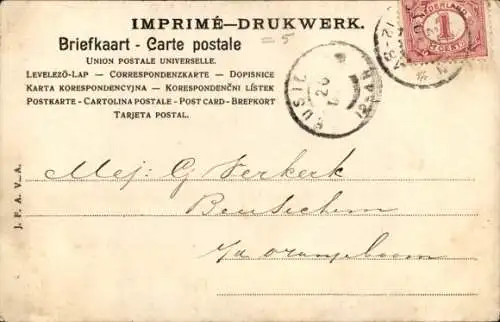 IMPRIMÉ—DRUKWERK.
Briefkaart - Carte postale
= 5
UNION POSTALE UNIVERSELLE.
LEVELEZŐ-LAP — CORRESPONDENZKARTE — DOPISNICE
KARTA KORESPONDENCYJNA — KORESPONDENČNI LÍSTEK
POSTKARTE - CARTOLINA POSTALE - POST CARD - BREFKORT
TARJETA POSTAL.
1
CENT
12-3
Mej: G Verkerk
Beusichem
J. F. A. V. A.